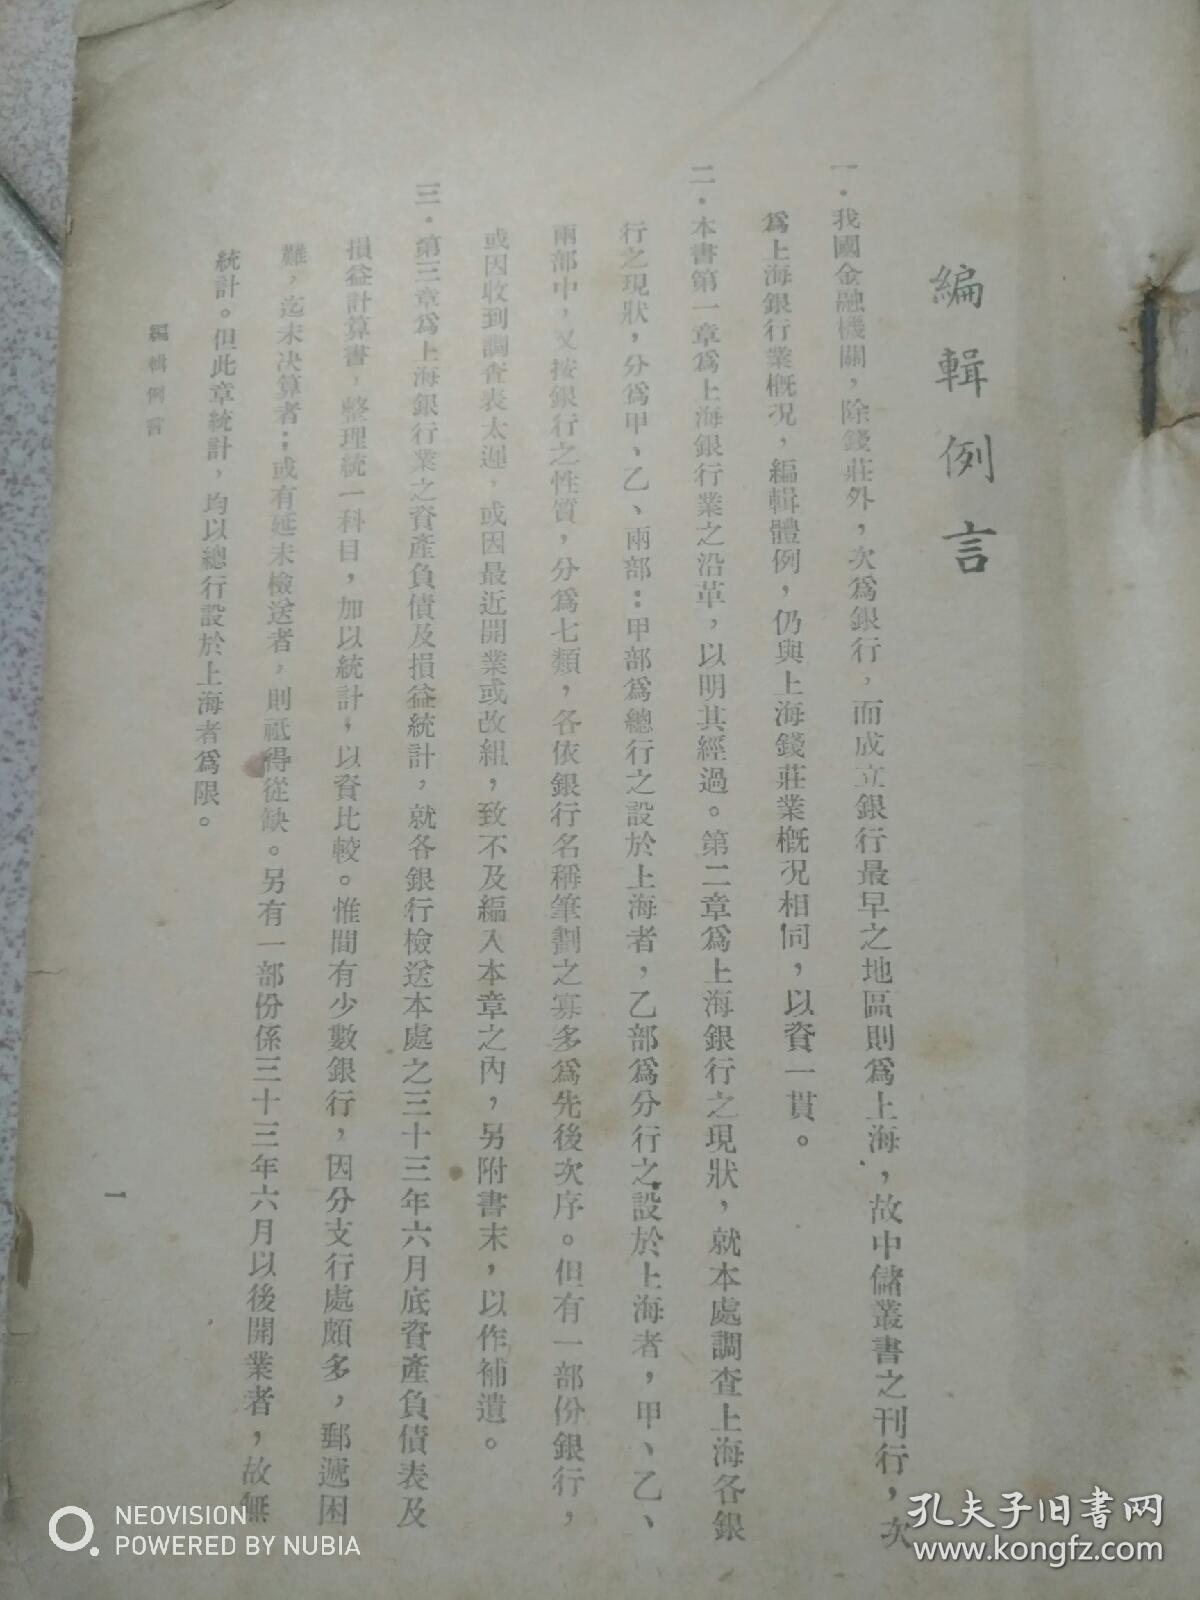 編輯例言
一．我國金融機關，除錢莊外，次爲銀行，而成立銀行最早之地區則爲上海，故中儲叢書之刊行，次
爲上海銀行業概況，編輯體例，仍與上海錢莊業概況相同，以資一貫。
二．本書第一章爲上海銀行業之沿革，以明其經過。第二章爲上海銀行之現狀，就本處調查上海各銀
行之現狀，分爲甲、乙、兩部：甲部爲總行之設於上海者，乙部爲分行之設於上海者，甲、乙、
兩部中，又按銀行之性質，分爲七類，各依銀行名稱筆劃之寡多爲先後次序。但有一部份銀行，
或因收到調查表太遲，或因最近開業或改組，致不及編入本章之內，另附書末，以作補遺。
三．第三章爲上海銀行業之資產負債及損益統計，就各銀行檢送本處之三十三年六月底資產負債表及
損益計算書，整理統一科目，加以統計，以資比較。惟間有少數銀行，因分支行處頗多，郵遞困
難，迄未決算者；或有延未檢送者，則祇得從缺。另有一部份係三十三年六月以後開業者，故無
統計。但此章統計，均以總行設於上海者爲限。
編輯例言
一
NEOVISION
POWERED BY NUBIA
孔夫子旧书网
www.kongfz.com